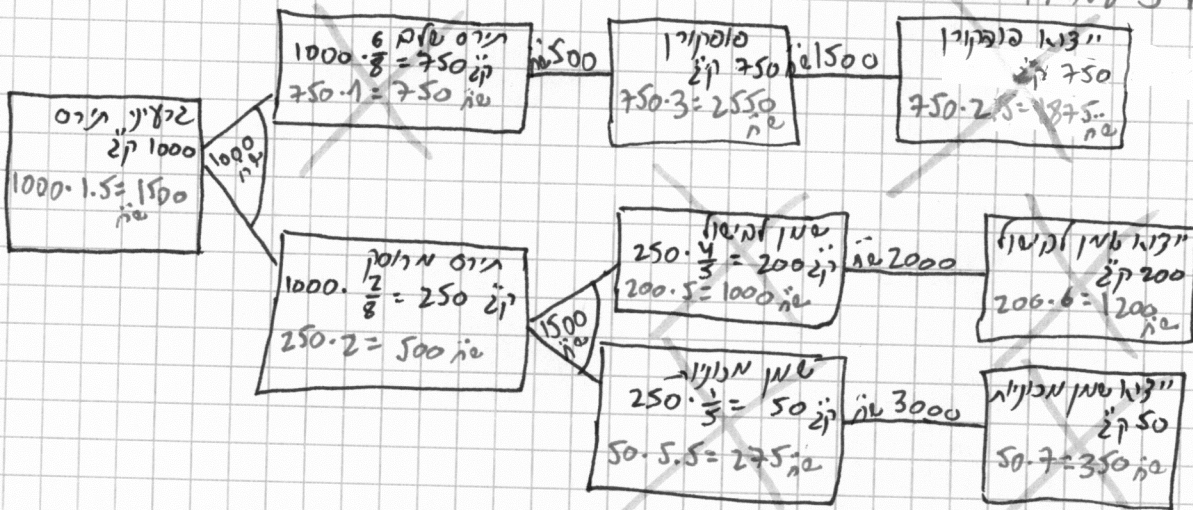 גרעיני תירס
1000 ק"ג
1000·1.5=1500
ש"ח
1000
ש"ח
תירס שלם
1000·6/8 = 750 ק"ג
750·1=750 ש"ח
500 ש"ח
פופקורן
750 ק"ג
750·3=2550
ש"ח
1500 ש"ח
ייצוא פופקורן
750 ק"ג
750·2.5=1875
ש"ח
תירס מרוסק
1000·2/8 = 250 ק"ג
250·2= 500 ש"ח
1500
ש"ח
שמן לבישול
250·4/5 = 200 ק"ג
200·5=1000 ש"ח
2000 ש"ח
ייצוא שמן לבישול
200 ק"ג
200·6=1200
ש"ח
שמן מכוניות
250·1/5 = 50 ק"ג
50·5.5=275 ש"ח
3000 ש"ח
ייצוא שמן מכוניות
50 ק"ג
50·7=350 ש"ח